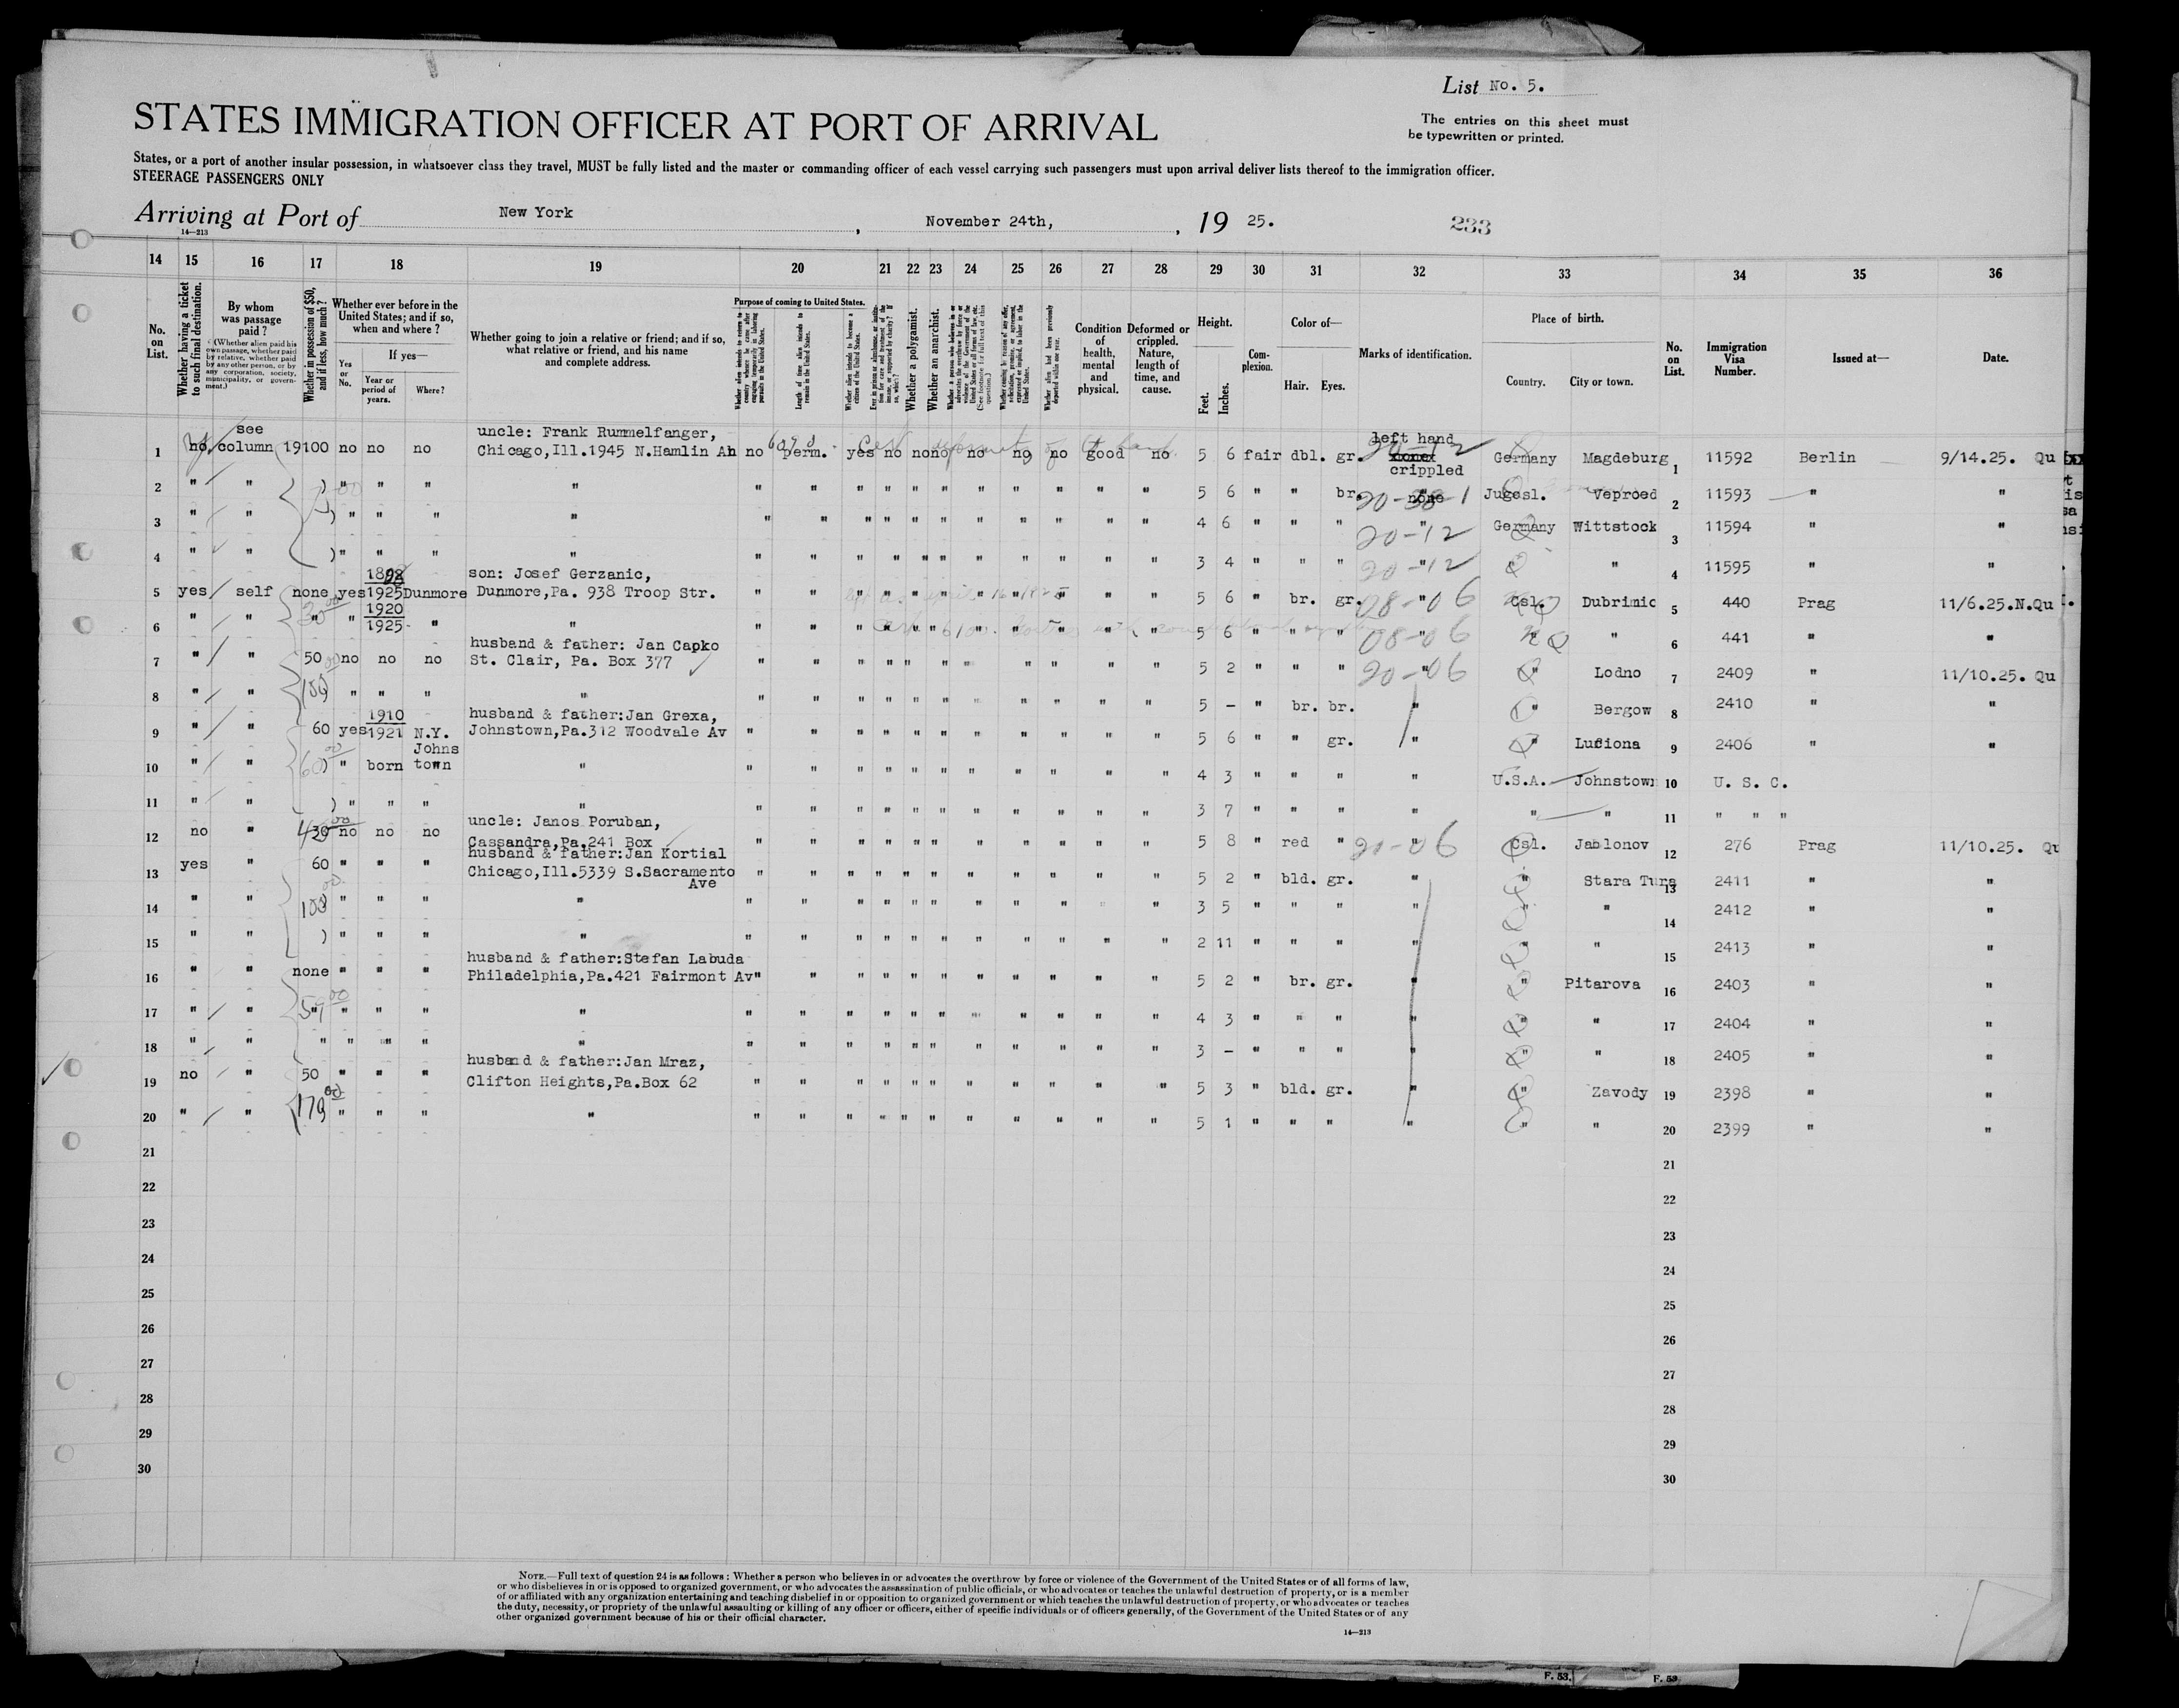 List No. 5.
STATES IMMIGRATION OFFICER AT PORT OF ARRIVAL
The entries on this sheet must
be typewritten or printed.
States, or a port of another insular possession, in whatsoever class they travel, MUST be fully listed and the master or commanding officer of each vessel carrying such passengers must upon arrival deliver lists thereof to the immigration officer.
STEERAGE PASSENGERS ONLY
Arriving at Port of New York, November 24th, 1925. 233
14—213
14 15 16 17 18 19 20 21 22 23 24 25 26 27 28 29 30 31 32 33 34 35 36
No. on List.
Whether having a ticket to such final destination.
By whom was passage paid?
(Whether alien paid his own passage, whether paid by relative, whether paid by any other person, or by any corporation, society, municipality, or government.)
Whether in possession of $50, and if less, how much?
Whether ever before in the United States; and if so, when and where?
Yes or No.
If yes—
Year or period of years.
Where?
Whether going to join a relative or friend; and if so, what relative or friend, and his name and complete address.
Purpose of coming to United States.
Length of time alien intends to remain in the United States.
Whether alien intends to become a citizen of the United States.
Whether a polygamist.
Whether an anarchist.
Condition of health, mental and physical.
Deformed or crippled. Nature, length of time, and cause.
Height.
Feet. Inches.
Complexion.
Color of—
Hair. Eyes.
Marks of identification.
Place of birth.
Country. City or town.
No. on List.
Immigration Visa Number.
Issued at—
Date.
1 no see column 19 100 no no no uncle: Frank Rummelfanger, Chicago,Ill.1945 N.Hamlin Ah no perm. yes no no no no no no good no 5 6 fair dbl. gr. left hand crippled 20-12 Germany Magdeburg 1 11592 Berlin 9/14.25. Qu
2 " " ) " " " " " " " " " " " " " " " 5 6 " " br. none Jugosl. Veproed 2 11593 " "
3 " " ) " " " " " " " " " " " " " " " 4 6 " " " " 20-12 Germany Wittstock 3 11594 " "
4 " " ) " " " " " " " " " " " " " " " 3 4 " " " " 20-12 " " 4 11595 " "
5 yes self none yes 1925 Dunmore son: Josef Gerzanic, Dunmore,Pa. 938 Troop Str. " " " " " " " " " " " 5 6 " br. gr. " 08-06 Csl. Dubrimic 5 440 Prag 11/6.25.N.Qu
6 " " " " 1920 1925 " " " " " " " " " " " " " 5 6 " " " " 08-06 NQ " 6 441 " "
7 " " 50 no no no husband & father: Jan Capko St. Clair, Pa. Box 377 " " " " " " " " " " " 5 2 " " " " 20-06 " Lodno 7 2409 " 11/10.25. Qu
8 " " 100 " " " " " " " " " " " " " " " 5 - " br. br. " " Bergow 8 2410 " "
9 " " 60 yes 1910 1921 N.Y. husband & father:Jan Grexa, Johnstown,Pa.312 Woodvale Av " " " " " " " " " " " 5 6 " " gr. " " Lufiona 9 2406 " "
10 " " ) " born Johns town " " " " " " " " " " " " 4 3 " " " " U.S.A. Johnstown 10 U. S. C.
11 " " ) " " " " " " " " " " " " " " " 3 7 " " " " " " 11 " " "
12 no " 430 no no no uncle: Janos Poruban, Cassandra,Pa.241 Box " " " " " " " " " " " 5 8 " red " " 20-06 Csl. Jablonov 12 276 Prag 11/10.25. Qu
13 yes " 60 " " " husband & father:Jan Kortial Chicago,Ill.5339 S.Sacramento Ave " " " " " " " " " " " 5 2 " bld. gr. " " Stara Tura 13 2411 " "
14 " " 100 " " " " " " " " " " " " " " " 3 5 " " " " " " 14 2412 " "
15 " " ) " " " " " " " " " " " " " " " 2 11 " " " " " " 15 2413 " "
16 " " none " " " husband & father:Stefan Labuda Philadelphia,Pa.421 Fairmont Av " " " " " " " " " " " 5 2 " br. gr. " " Pitarova 16 2403 " "
17 " " " " " " " " " " " " " " " " " " 4 3 " " " " " " 17 2404 " "
18 " " " " " " " " " " " " " " " " " " 3 - " " " " " " 18 2405 " "
19 no " 50 " " " husband & father:Jan Mraz, Clifton Heights,Pa.Box 62 " " " " " " " " " " " 5 3 " bld. gr. " " Zavody 19 2398 " "
20 " " 170 " " " " " " " " " " " " " " " 5 1 " " " " " " 20 2399 " "
21 21
22 22
23 23
24 24
25 25
26 26
27 27
28 28
29 29
30 30
NOTE.—Full text of question 24 is as follows: Whether a person who believes in or advocates the overthrow by force or violence of the Government of the United States or of all forms of law,
or who disbelieves in or is opposed to organized government, or who advocates the assassination of public officials, or who advocates or teaches the unlawful destruction of property, or is a member
of or affiliated with any organization entertaining and teaching disbelief in or opposition to organized government or which teaches the unlawful destruction of property, or who advocates or teaches
the duty, necessity, or propriety of the unlawful assaulting or killing of any officer or officers, either of specific individuals or of officers generally, of the Government of the United States or of any
other organized government because of his or their official character.
14—213
F. 53. F. 53